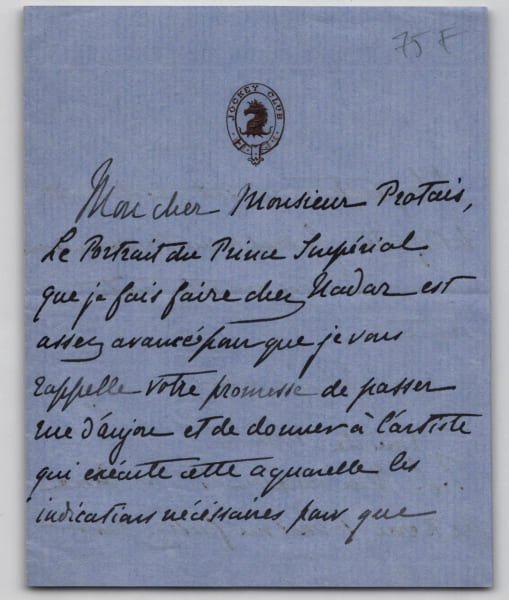 75 F
JOCKEY CLUB
Mon cher Monsieur Protais,
Le Portrait du Prince Impérial
que je fais faire chez Nadar est
assez avancé pour que je vous
rappelle votre promesse de passer
rue d'anjou et de donner à l'artiste
qui exécute cette aquarelle les
indications nécessaires pour que